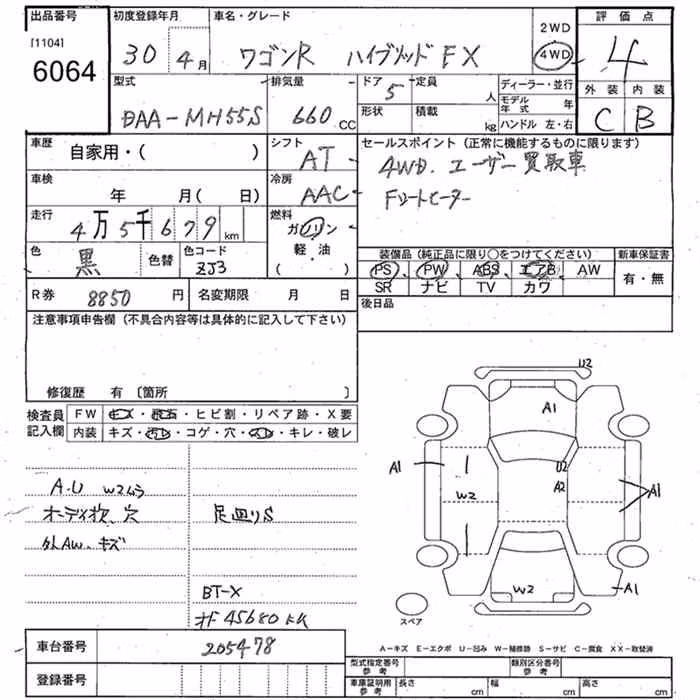 出品番号 初度登録年月 車名・グレード 2WD 評価点
[1104] 6064 30 4月 ワゴンR ハイブリッドFX 4WD 4
型式 排気量 ドア 5 定員 人 ディーラー・並行 外装 内装
DAA-MH55S 660cc 形状 積載 kg モデル年式 年 C B
ハンドル 左・右
車歴 自家用・( ) シフト AT セールスポイント(正常に機能するものに限ります)
4WD. ユーザー買取車
車検 年 月( 日) 冷房 AAC Fシートヒーター
走行 4万5千679km 燃料 ガソリン
軽・油
( )
色 黒 色替 色コード ZJ3
装備品(純正品に限り○をつけてください) 新車保証書
PS PW ABS エアB AW 有・無
SR ナビ TV カワ
R券 8850円 名変期限 月 日 後日品
注意事項申告欄(不具合内容等は具体的に記入して下さい)
修復歴 有〔箇所 〕
検査員記入欄 FW キズ・飛石・ヒビ割・リペア跡・X要
内装 キズ・汚レ・コゲ・穴・スレ・キレ・破レ
A.U W2ムラ
オーディオ, 穴 足廻りS
外AW.キズ
BT-X
オド 45680km
車台番号 205478
登録番号
U2
A1
A1 U2
A2
W2 A1
W2 A1
スペア
A-キズ E-エクボ U-凹み W-補修跡 S-サビ C-腐食 XX-取替済
型式指定番号 参考 類別区分番号 参考
車庫証明用 参考 長さ cm 幅 cm 高さ cm